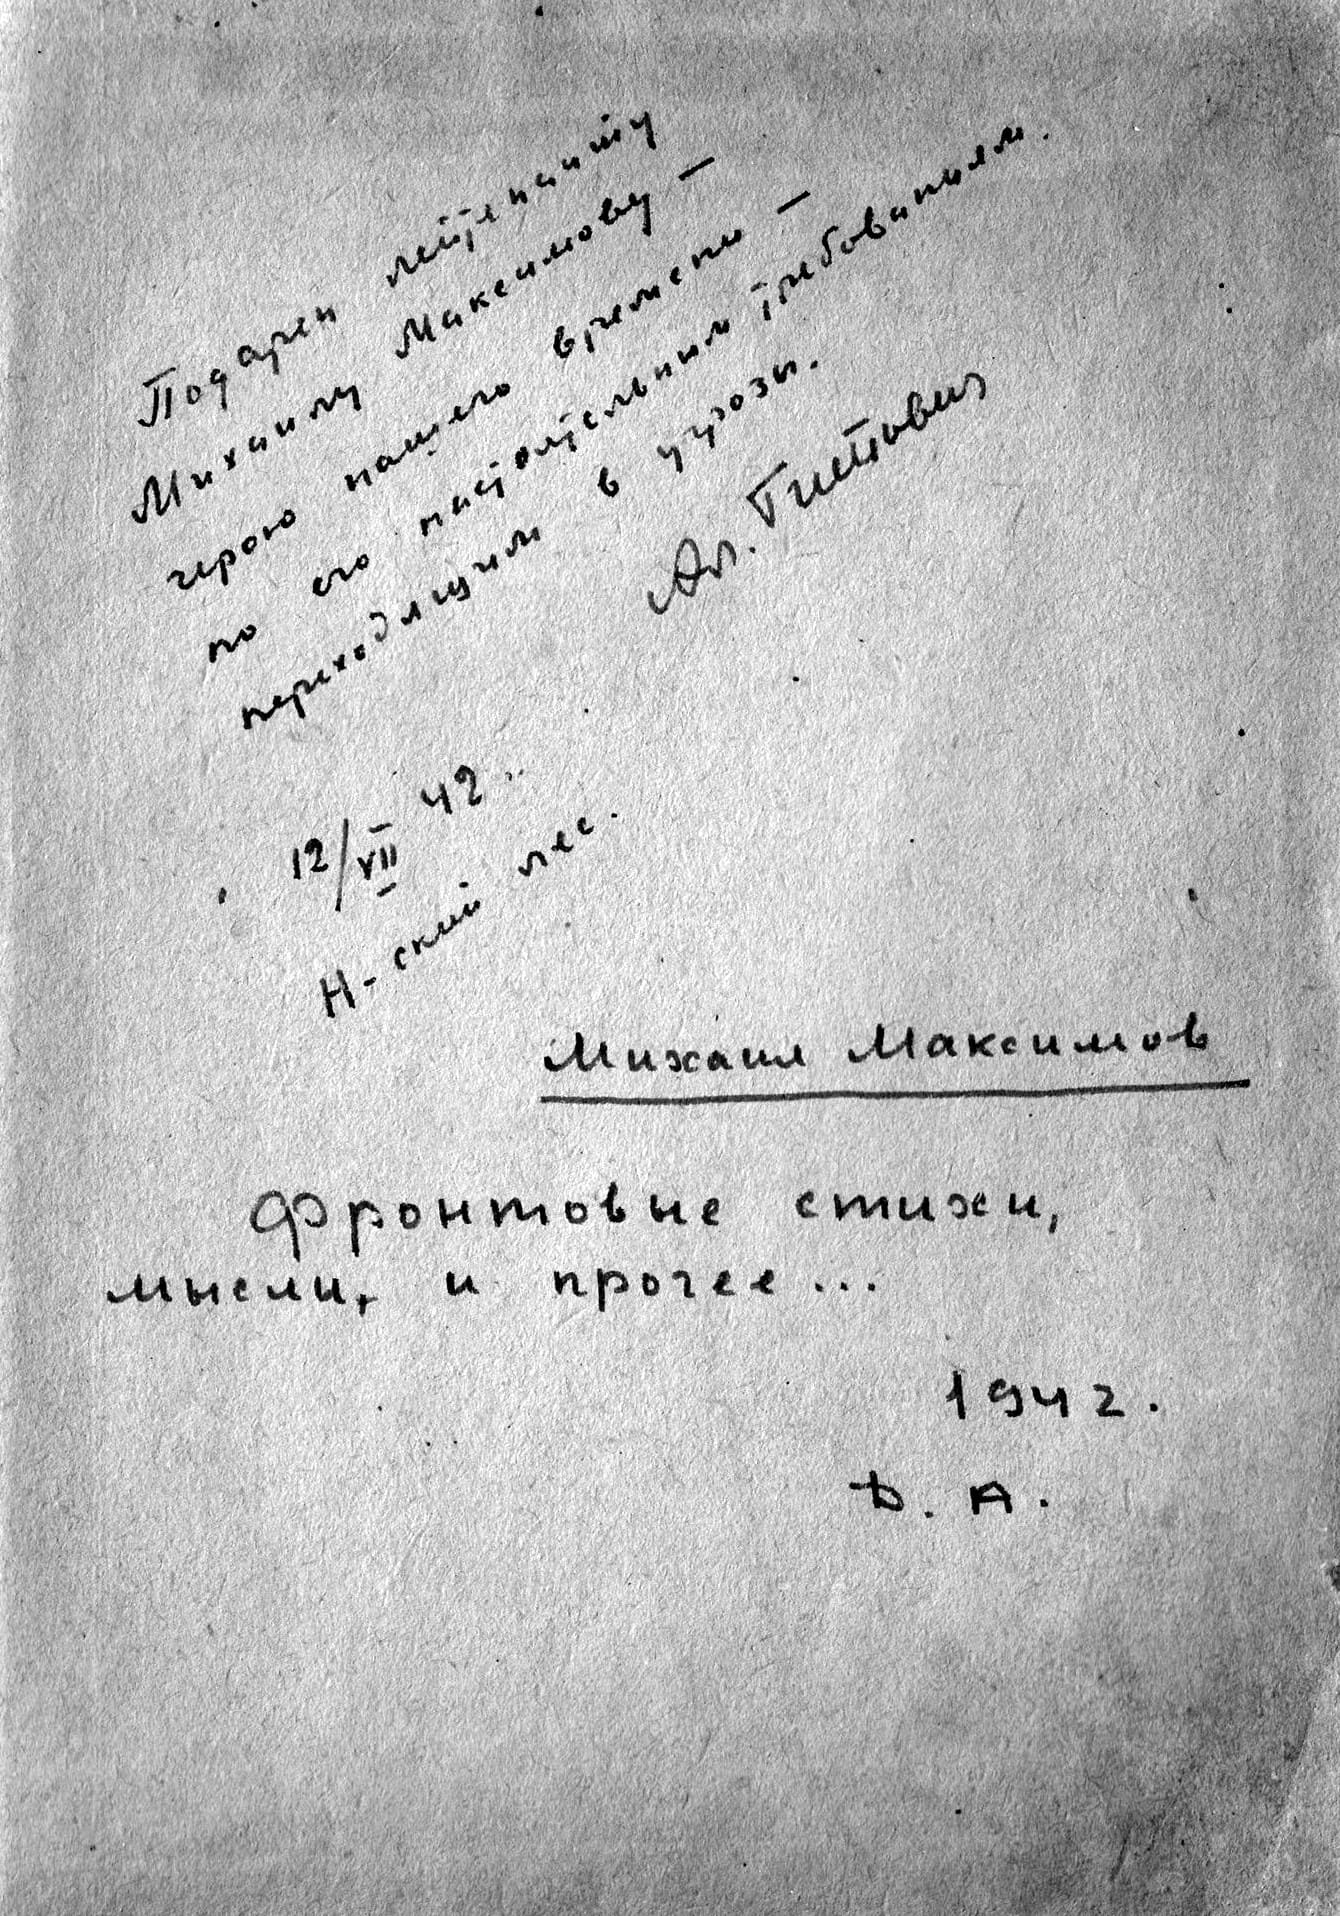 Подарен лейтенанту
Михаилу Максимову —
герою нашего времени —
по его настоятельным требованиям.
переходящим в угрозы.
Ал. Гитович
12/VII 42.
Н-ский лес.
Михаил Максимов
Фронтовые стихи,
мысли, и прочее...
1942.
Д. А.